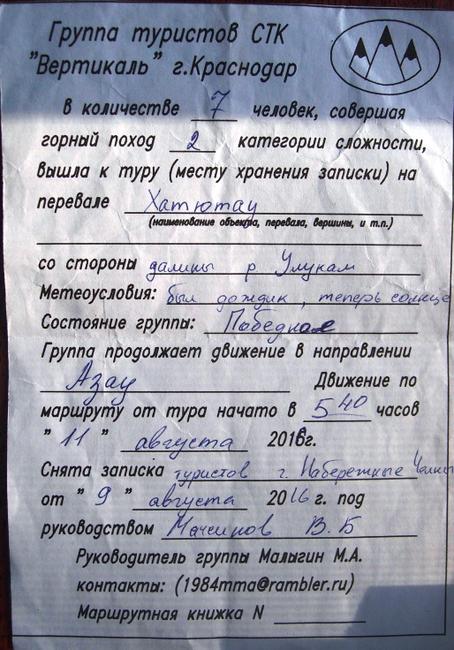 Группа туристов СТК
"Вертикаль" г.Краснодар
в количестве 7 человек, совершая
горный поход 2 категории сложности,
вышла к туру (месту хранения записки) на
перевале Хатютау
(наименование объекта, перевала, вершины, и т.п.)
со стороны далины р Улукам
Метеоусловия: был дождик, теперь солнце
Состояние группы: Победная
Группа продолжает движение в направлении
Азау Движение по
маршруту от тура начато в 5 40 часов
" 11 " августа 2016г.
Снята записка туристов г. Набережные Челны
от " 9 " августа 2016 г. под
руководством В.Б
Руководитель группы Малыгин М.А.
контакты: (1984mma@rambler.ru)
Маршрутная книжка N